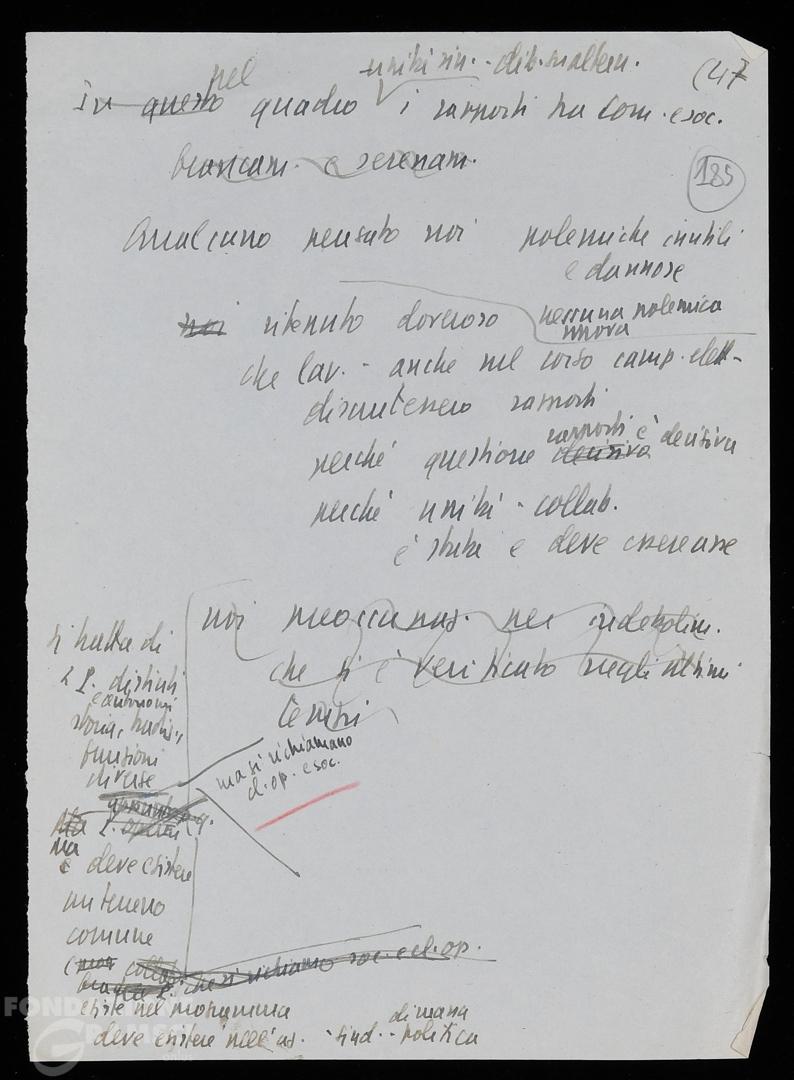 nel unità sin. - dib. maltem. (47
In questo quadro i rapporti tra com. e soc.
francam. e serenam. 185
Qualcuno pensato noi polemiche inutili
e dannose
noi ritenuto doveroso nessuna polemica
nuova
che lav. - anche nel corso camp. elett-
discutessero rapporti
perché questione rapporti è decisiva
decisiva
perché unità - collab.
è stata e deve essere asse
noi preoccupaz. per indebolim.
che si è verificato negli ultimi
tempi
si tratta di
2 P. distinti
e autonomi
storia, tradiz.,
funzioni
diverse
ma si richiamano
cl. op. e soc.
ma
è deve esistere
un terreno
comune
che si richiamo soc. e cl. op.
esiste nel programma
deve esistere nell'az. - sind. - politica